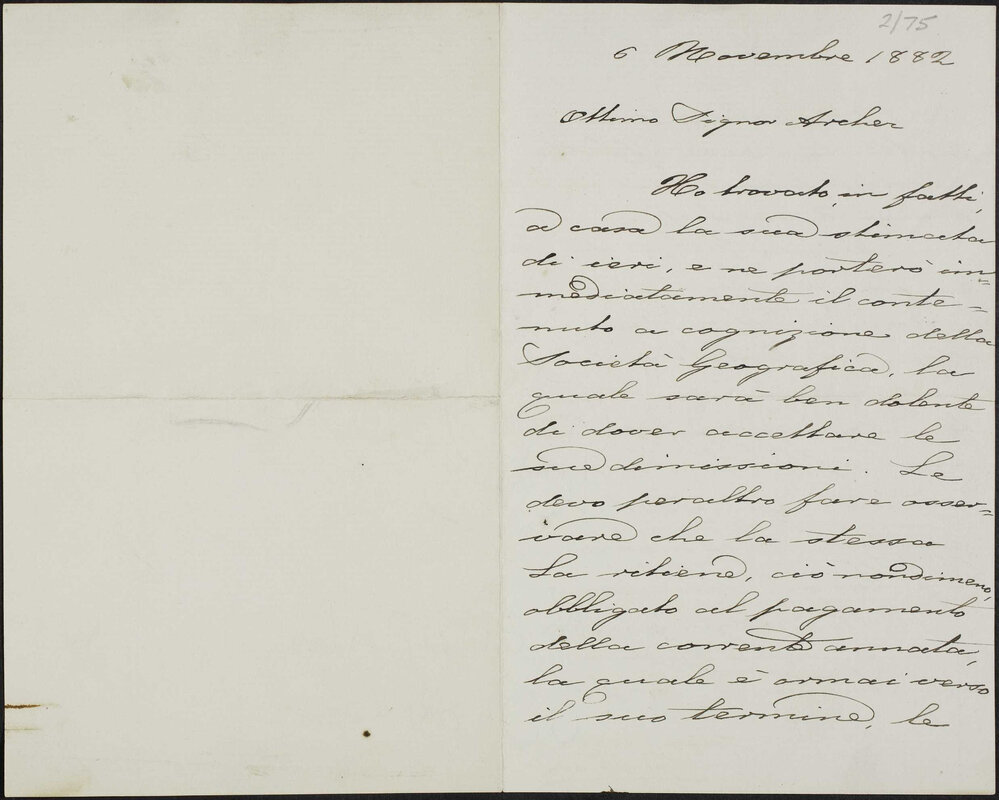 2/75
6 Novembre 1882
Ottimo Signor Archer
Ho trovato, in fatti,
a casa la sua stimata
di ieri, e ne porterò im=
mediatamente il conte=
nuto a cognizione della
Società Geografica, la
quale sarà ben dolente
di dover accettare le
sue dimissioni. Le
devo peraltro fare osser=
vare che la stessa
La ritiene, ciò nondimeno,
obbligato al pagamento
della corrente annata,
la quale è ormai verso
il suo termine, le